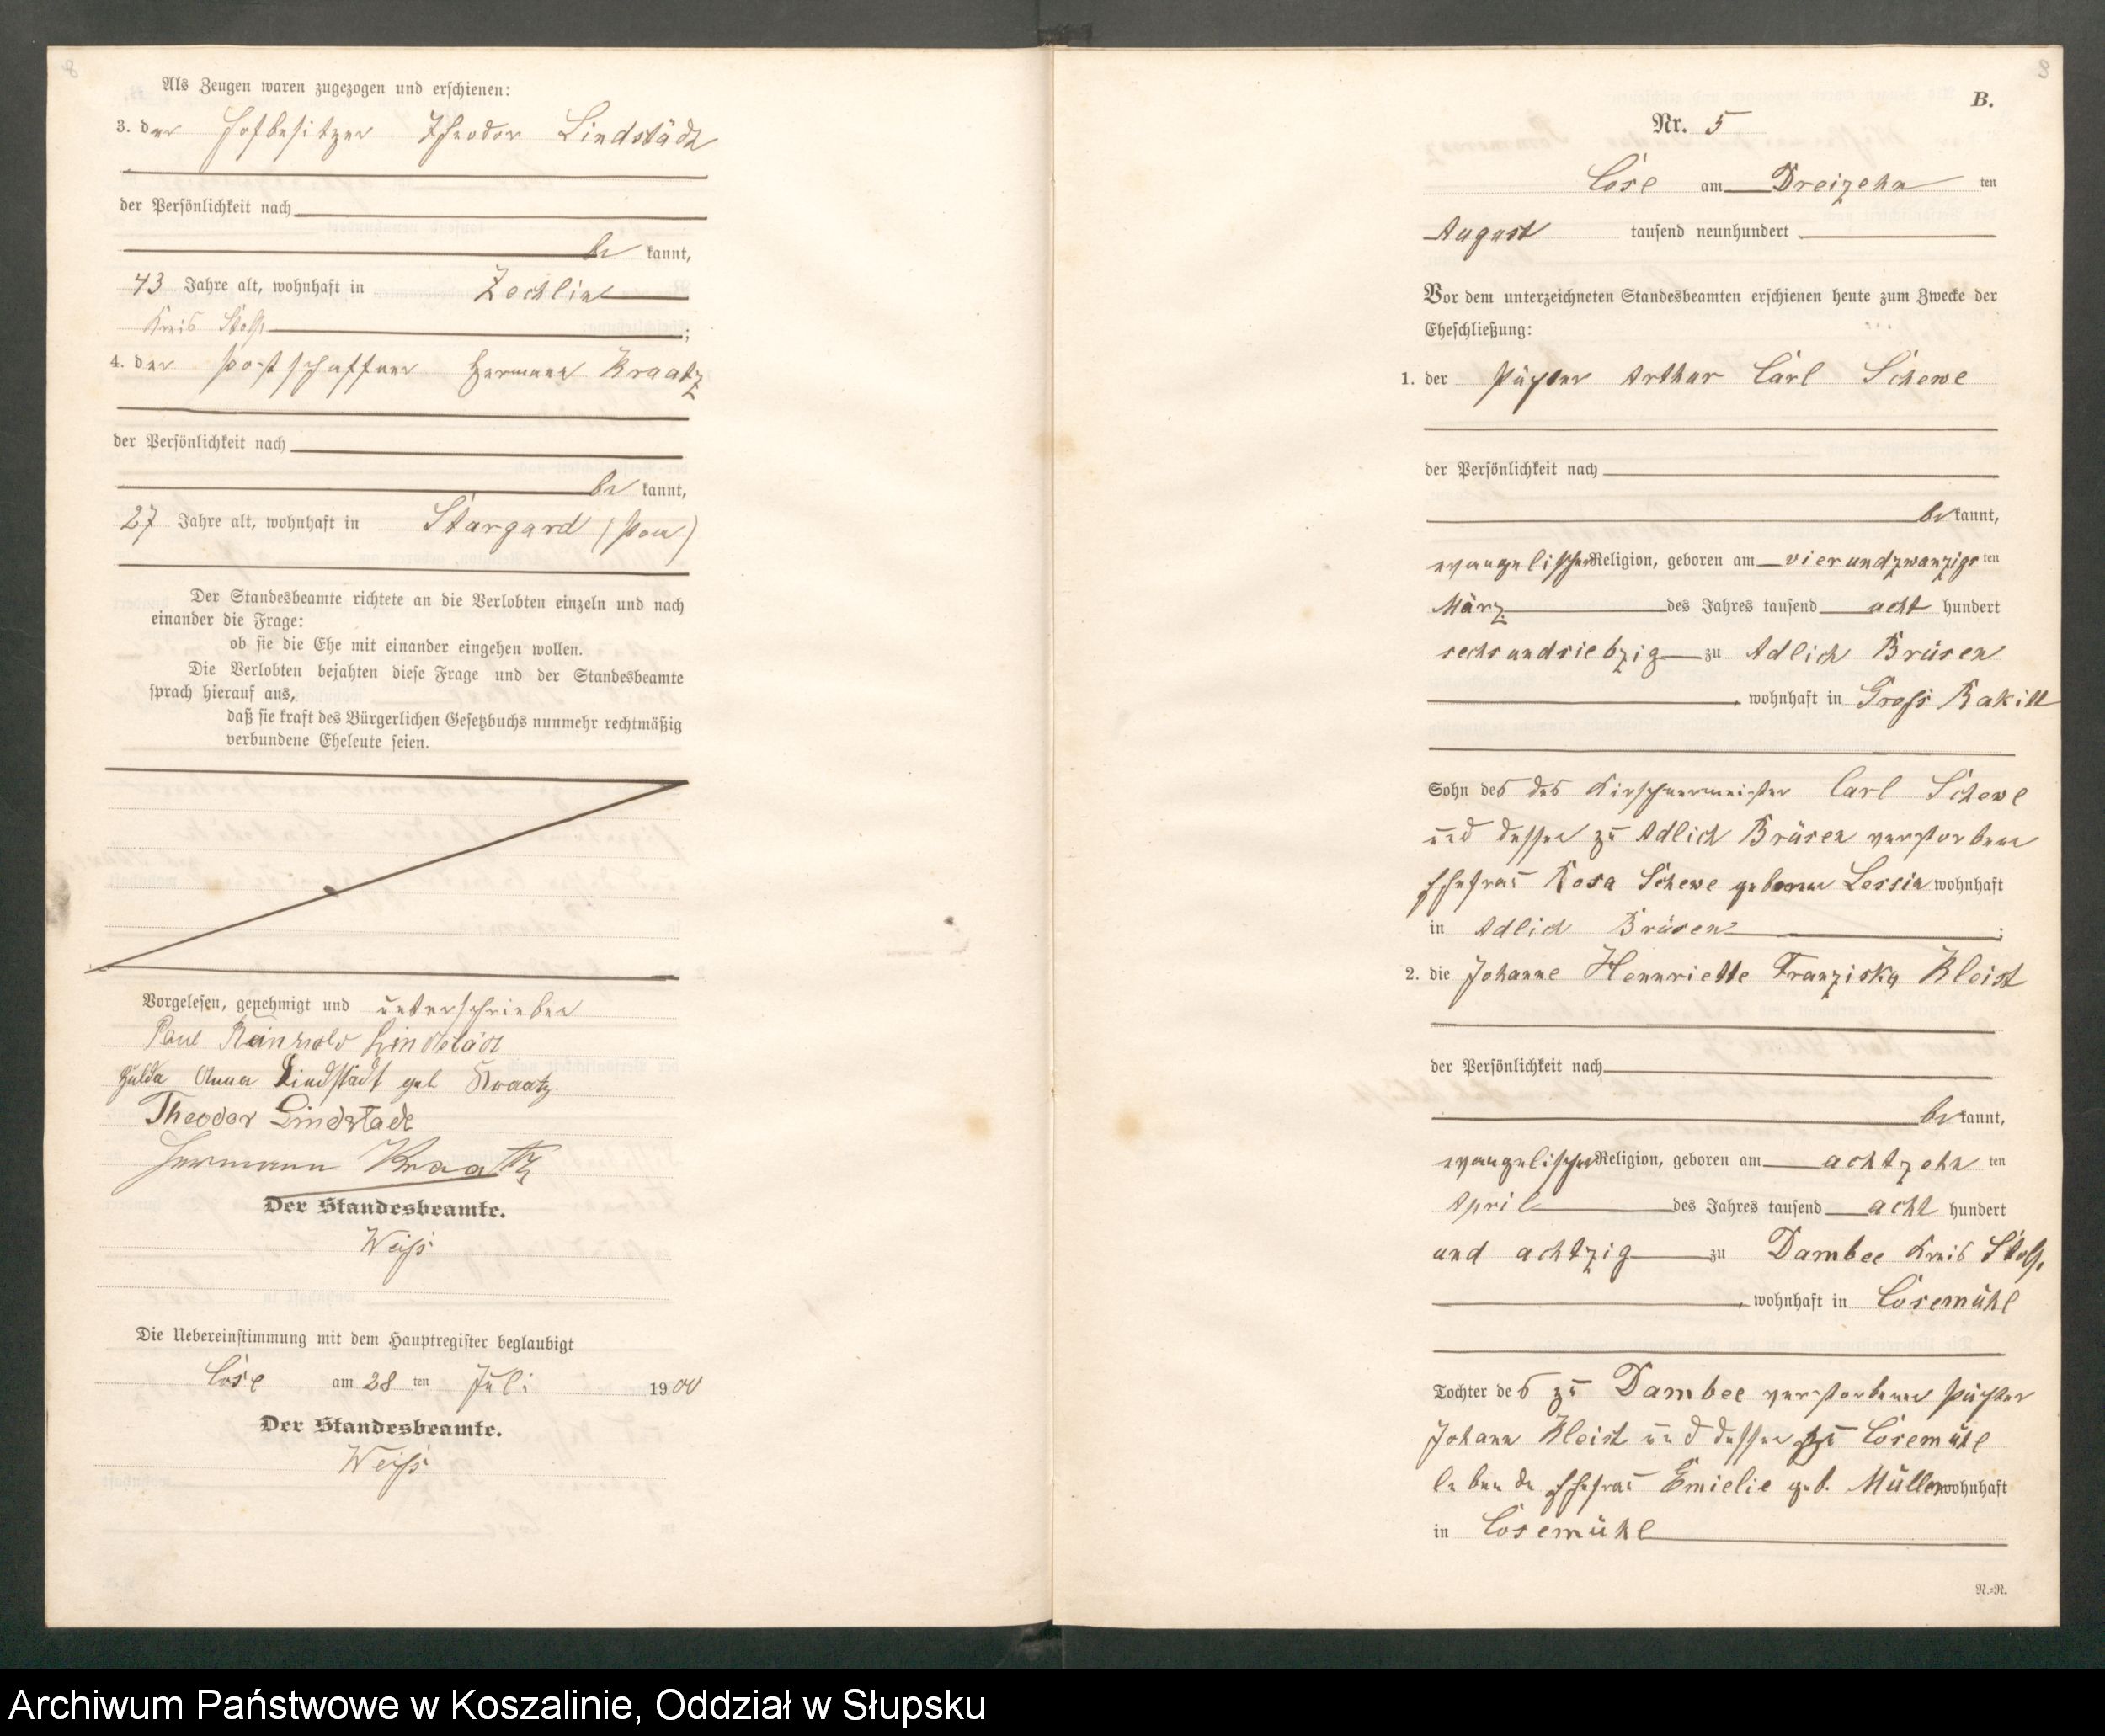 8
Als Zeugen waren zugezogen und erschienen:
3. der Hofbesitzer Theodor Lindstädt
der Persönlichkeit nach
be kannt,
43 Jahre alt, wohnhaft in Zechlin
Kreis Stolp ;
4. der Postschaffner Hermann Kraatz
der Persönlichkeit nach
be kannt,
27 Jahre alt, wohnhaft in Stargard (Pom)
Der Standesbeamte richtete an die Verlobten einzeln und nach
einander die Frage:
ob sie die Ehe mit einander eingehen wollen.
Die Verlobten bejahten diese Frage und der Standesbeamte
sprach hierauf aus,
daß sie kraft des Bürgerlichen Gesetzbuchs nunmehr rechtmäßig
verbundene Eheleute seien.
Vorgelesen, genehmigt und unterschrieben
Paul Reinhold Lindstädt
Hulda Anna Lindstädt geb Kraatz
Theodor Lindstädt
Hermann Kraatz
Der Standesbeamte.
Weiß
Die Uebereinstimmung mit dem Hauptregister beglaubigt
Cose am 28 ten Juli 1900
Der Standesbeamte.
Weiß
9
B.
Nr. 5
Cose am Dreizehn ten
August tausend neunhundert
Vor dem unterzeichneten Standesbeamten erschienen heute zum Zwecke der
Eheschließung:
1. der Pächter Arthur Carl Schewe
der Persönlichkeit nach
be kannt,
evangelischer Religion, geboren am vierundzwanzigs ten
März des Jahres tausend acht hundert
sechsundsiebzig zu Adlich Brüsen
, wohnhaft in Groß Rakitt
Sohn des des Kirschnermeister Carl Schewe
und dessen zu Adlich Brüsen verstorbene
Ehefrau Rosa Schewe geborene Lessin wohnhaft
in Adlich Brüsen ;
2. die Johanne Hennriette Franziska Kleist
der Persönlichkeit nach
be kannt,
evangelischer Religion, geboren am achtzehn ten
April des Jahres tausend acht hundert
und achtzig zu Dambee Kreis Stolp,
, wohnhaft in Cosemühl
Tochter des zu Dambee verstorbenen Pächter
Johann Kleist und dessen zu Cosemühl
lebende Ehefrau Emielie geb. Müller wohnhaft
in Cosemühl
N.=N.
Archiwum Państwowe w Koszalinie, Oddział w Słupsku